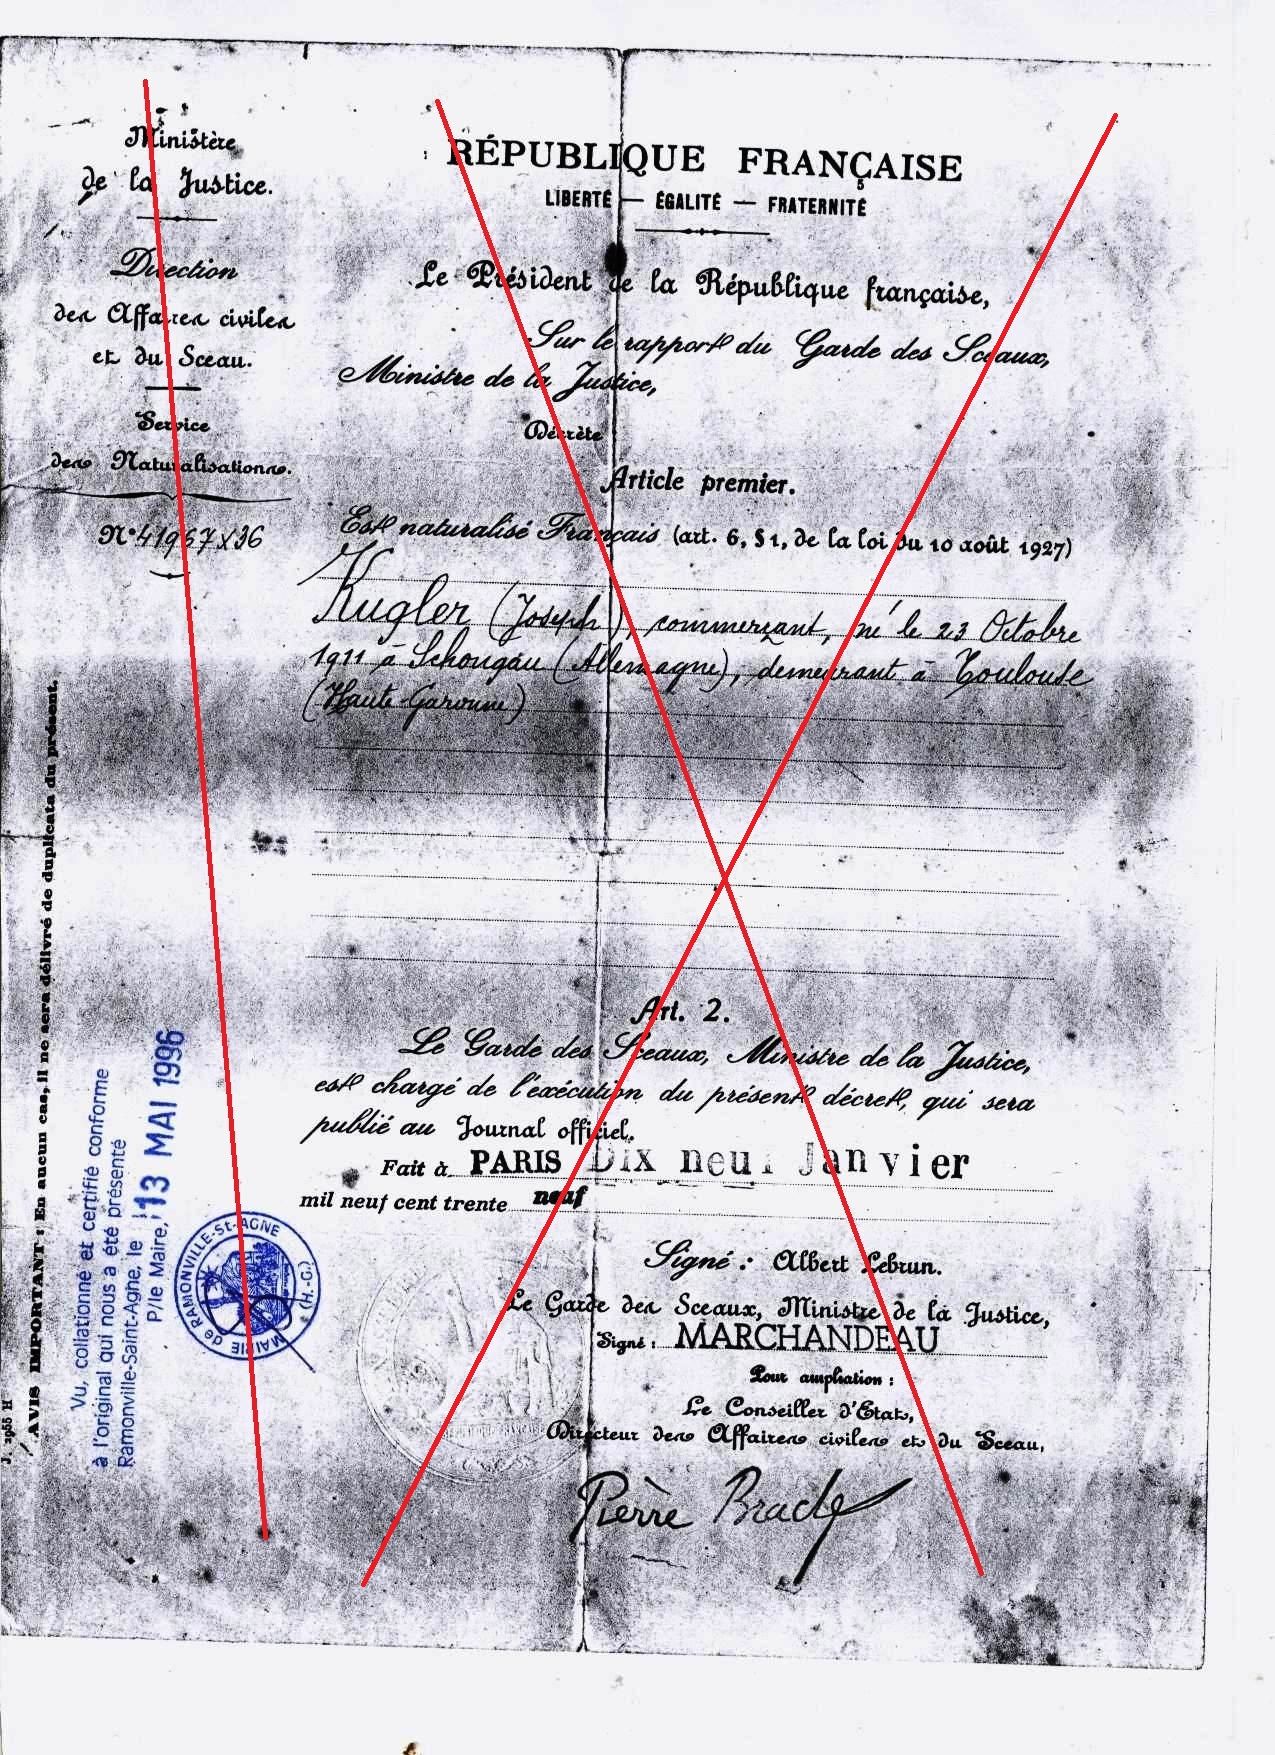 Ministère
de la Justice.
Direction
des Affaires civiles
et du Sceau.
Service
des Naturalisations.
N° 41967 X 36
RÉPUBLIQUE FRANÇAISE
LIBERTÉ — ÉGALITÉ — FRATERNITÉ
Le Président de la République française,
Sur le rapport du Garde des Sceaux,
Ministre de la Justice,
Décrète
Article premier.
Est naturalisé Français (art. 6, § 1, de la loi du 10 août 1927)
Kugler (Joseph), commerçant, né le 23 Octobre
1911 à Schongau (Allemagne), demeurant à Toulouse
(Haute-Garonne)
Art. 2.
Le Garde des Sceaux, Ministre de la Justice,
est chargé de l'exécution du présent décret, qui sera
publié au Journal officiel.
Fait à PARIS Dix neuf Janvier
mil neuf cent trente neuf
Signé : Albert Lebrun.
Le Garde des Sceaux, Ministre de la Justice,
Signé : MARCHANDEAU
Pour ampliation :
Le Conseiller d'Etat,
Directeur des Affaires civiles et du Sceau,
Pierre
AVIS IMPORTANT : En aucun cas, il ne sera délivré de duplicata du présent.
Vu, collationné et certifié conforme
à l'original qui nous a été présenté
Ramonville-Saint-Agne, le 13 MAI 1996
P/le Maire,
MAIRIE de RAMONVILLE-St-AGNE (H.-G.)